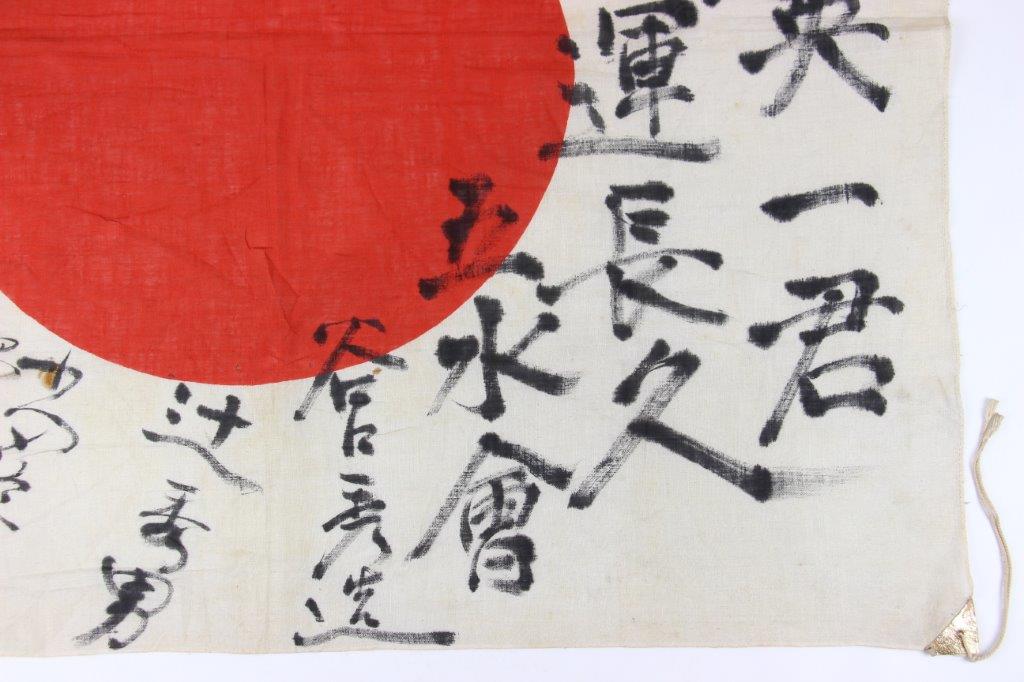 英一君
運長久
五水會
谷口秀造
辻秀男